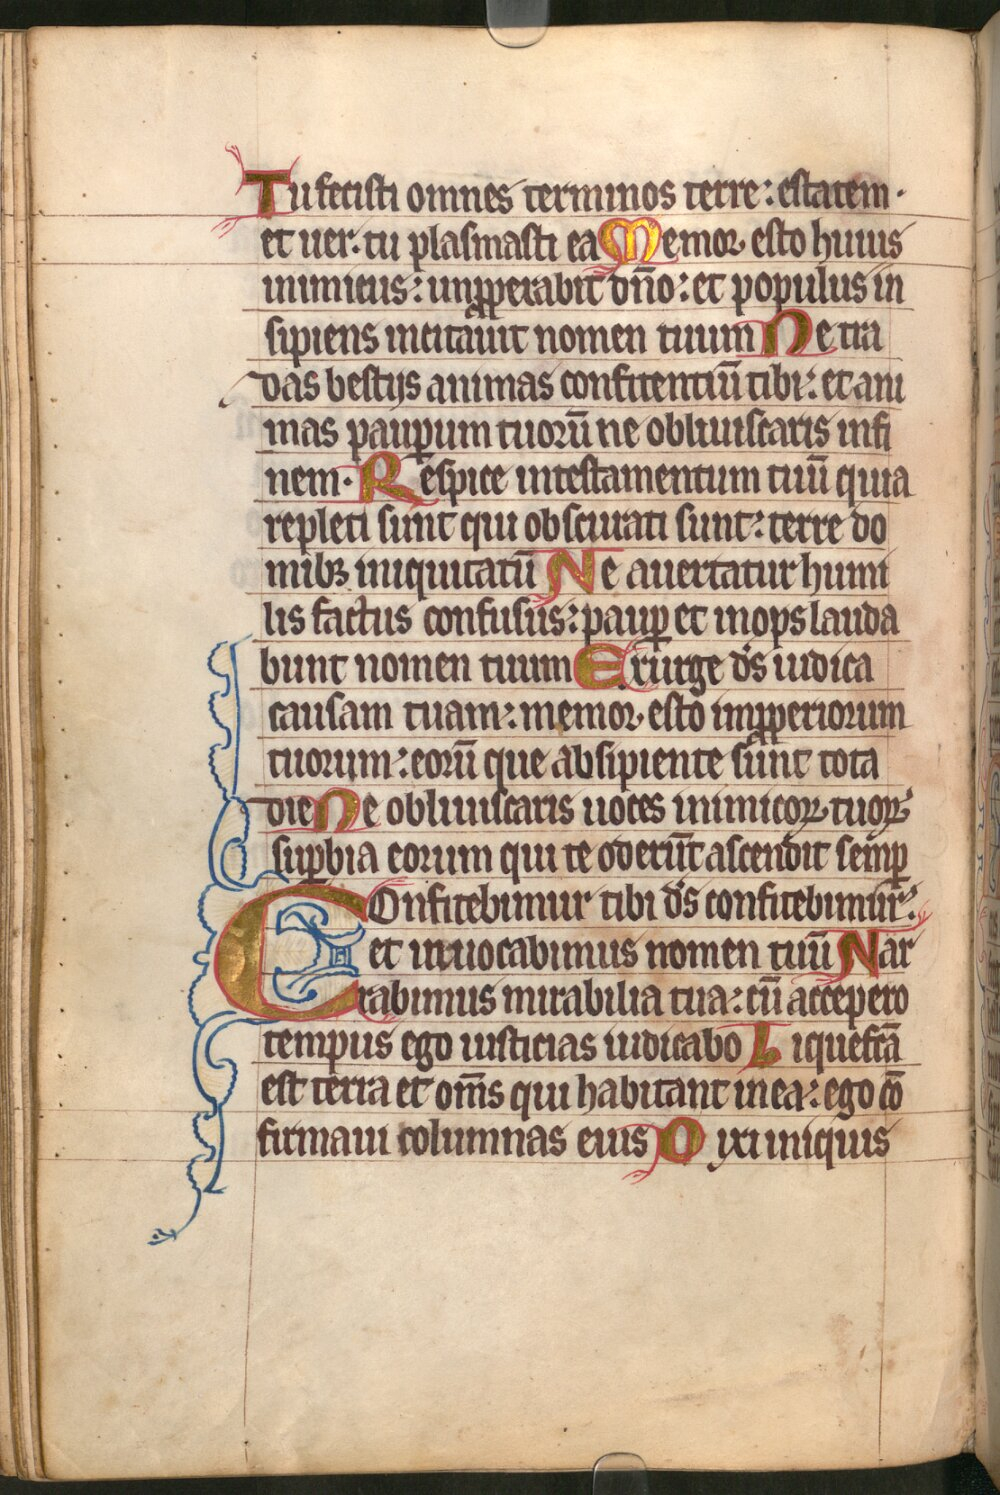 Tu fecisti omnes terminos terre: estatem.
et uer. tu plasmasti ea Memor esto huius
inimicus: inꝓperabit dn̄o: et populus in
sipiens incitauit nomen tuum Ne tra
das bestijs animas confitentiū tibi: et ani
mas pauꝑum tuorū ne obliuiscaris infi
nem. Respice intestamentum tuū quia
repleti sunt qui obscurati sunt: terre do
mibꝫ iniquitatū Ne auertatur humi
lis factus confusus: pauꝑ et inops lauda
bunt nomen tuum Exurge ds̄ iudica
causam tuam: memor esto inꝓperiorum
tuorum: eorū que absipiente sunt tota
die Ne obliuiscaris uoces inimicoꝝ tuoꝝ
suꝑbia eorum qui te oderūt ascendit semꝑ
Confitebimur tibi ds̄ confitebimur:
et inuocabimus nomen tuū Nar
rabimus mirabilia tua: cū accepero
tempus ego iusticias iudicabo Liquefcā
est terra et om̄s qui habitant in ea: ego cō
firmaui columnas eius Dixi iniquis